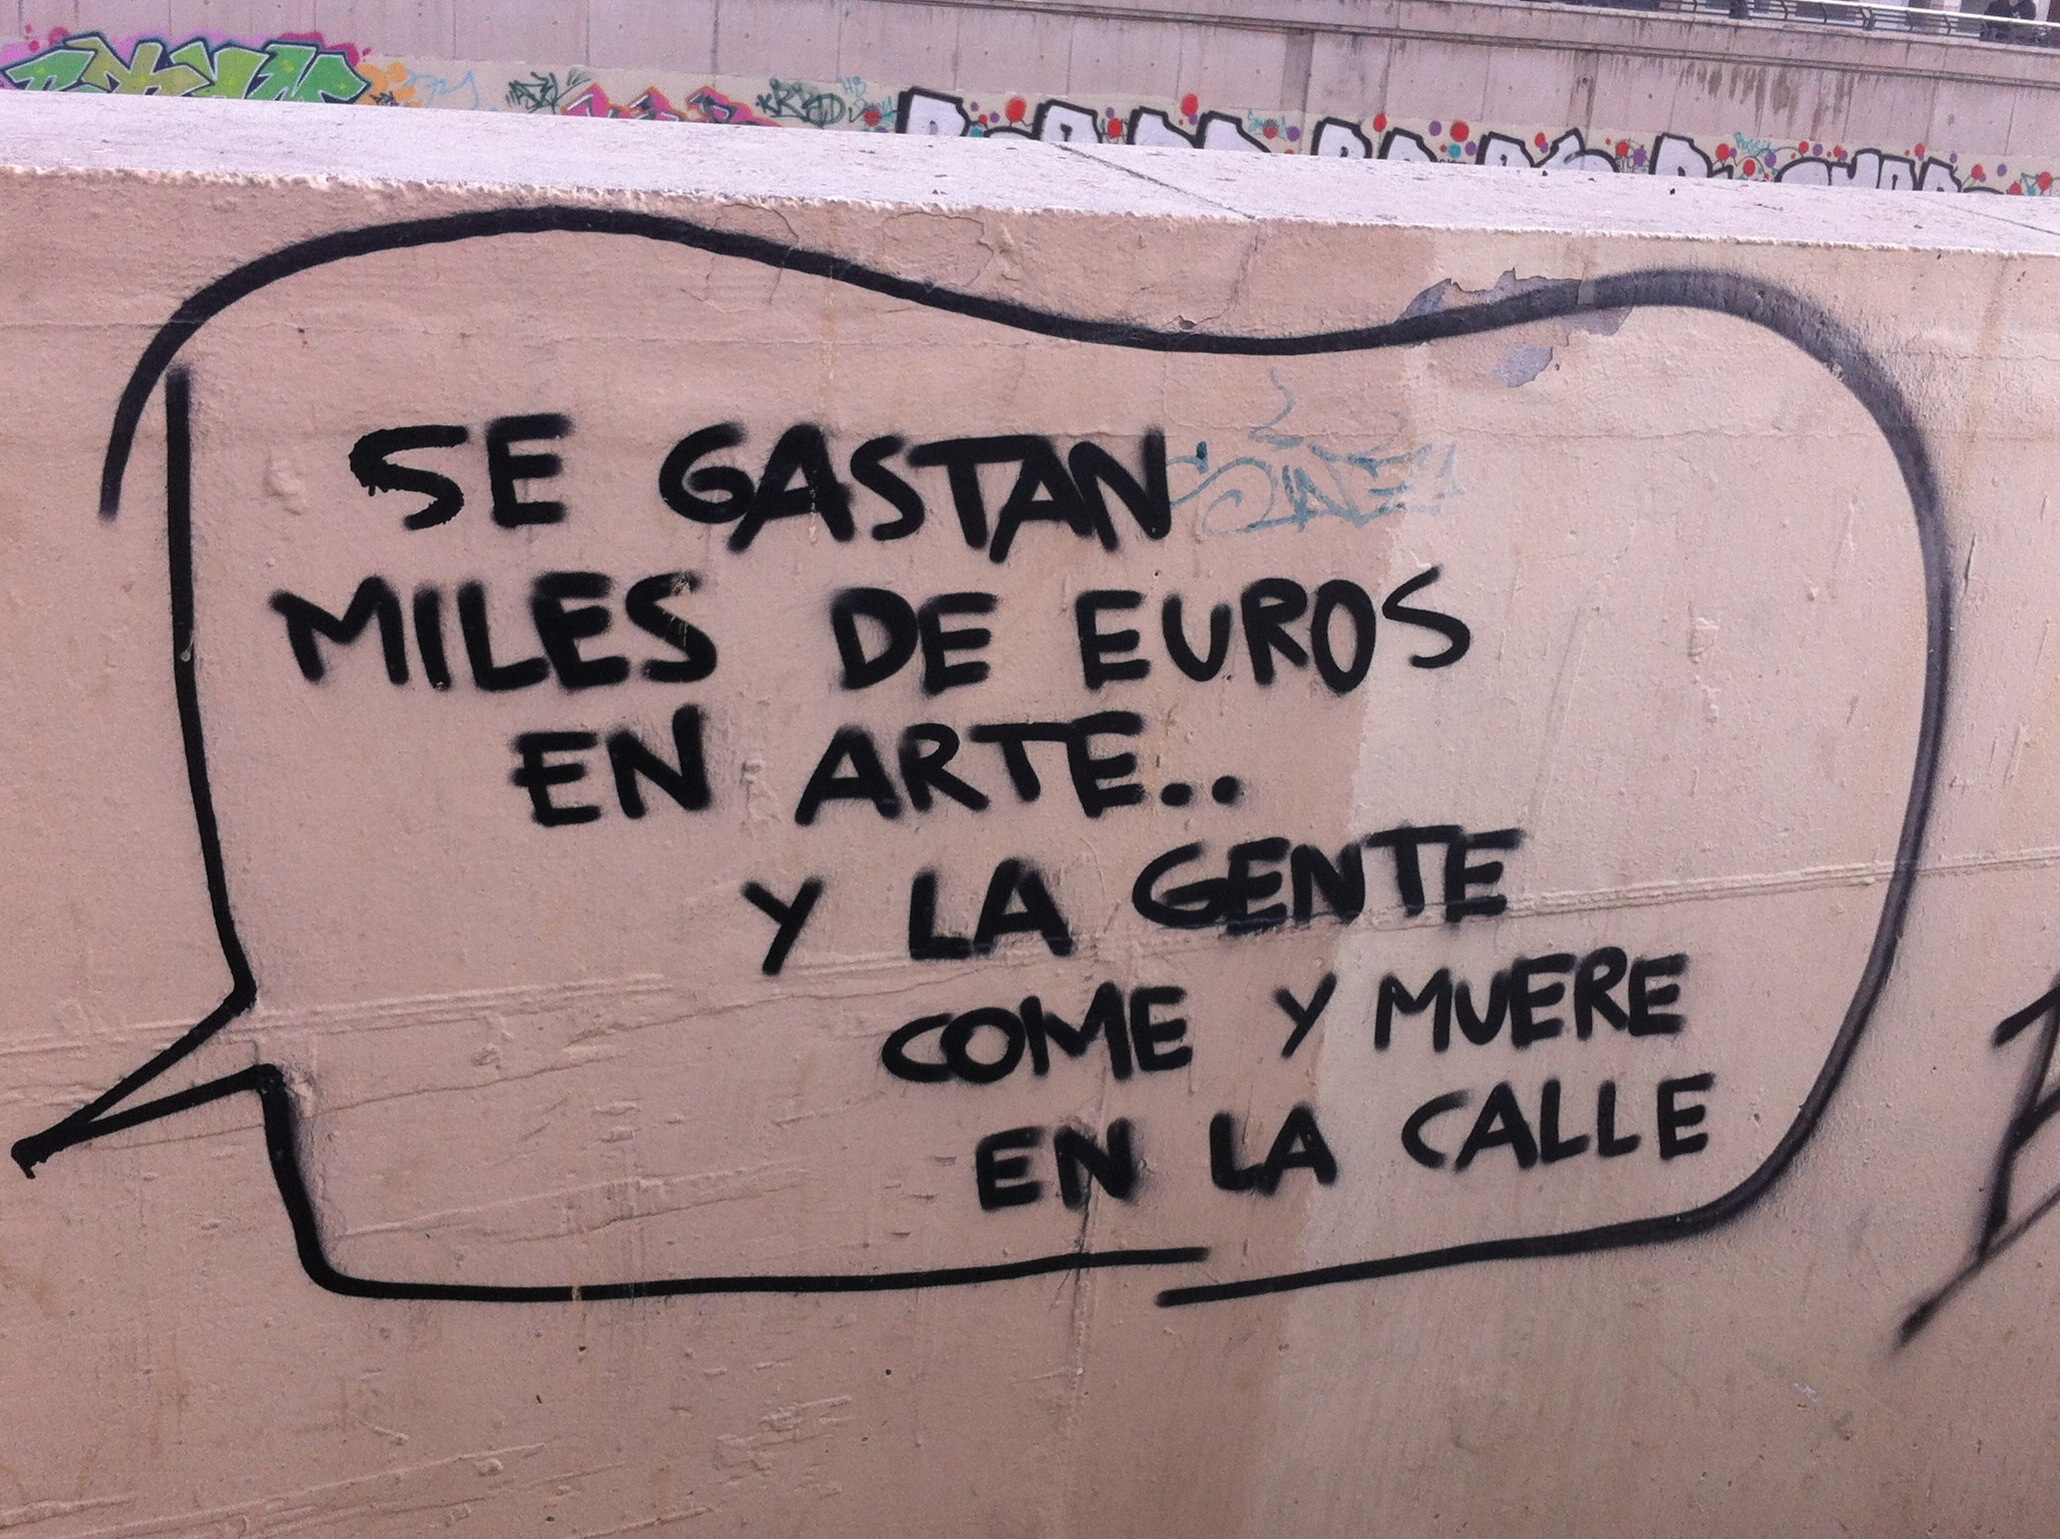 SE GASTAN
MILES DE EUROS
EN ARTE..
Y LA GENTE
COME Y MUERE
EN LA CALLE